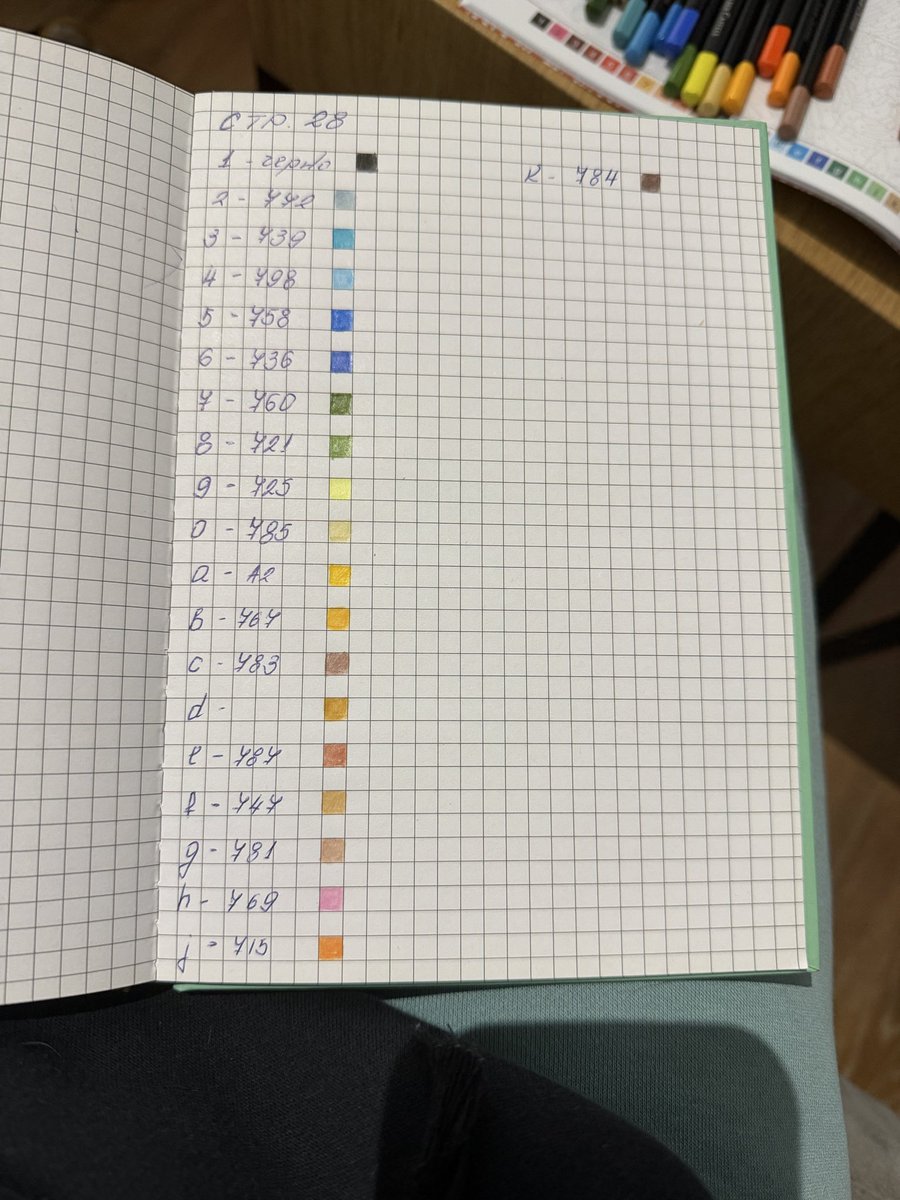 стр. 28
1 - черно
2 - 772
3 - 739
4 - 798
5 - 758
6 - 736
7 - 760
8 - 721
9 - 725
0 - 785
a - A2
B - 767
c - 783
d -
e - 787
f - 747
g - 781
h - 769
j - 715
k - 784